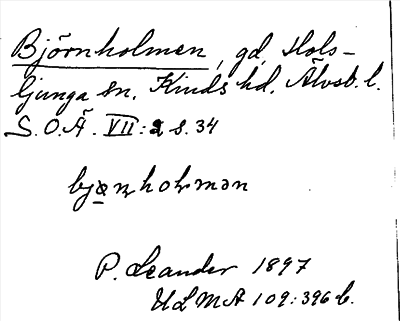 Björnholmen, gd, Hols-
ljunga sn, Kinds hd, Älvsb. l.
S.O.Ä. VII:2 s. 34
P. Leander 1897
ULMA 109:396 b.